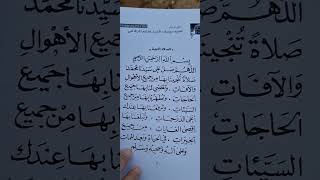 اللهم صل على سيدنا محمد
صلاة تنجينا
جميع الأهوال
والآفات
الحاجات
السيئات
بها جميع
بها من جميع
بها عندك
بسم الله الرحمن الرحيم
اللهم صل على سيدنا محمد
صلاة تنجينا بها من جميع الأهوال
والآفات وتقضي لنا بها جميع
الحاجات وتطهرنا بها من جميع
السيئات وترفعنا بها عندك
أعلى الدرجات وتبلغنا بها
أقصى الغايات من جميع
الخيرات في الحياة وبعد الممات
وعلى آله وصحبه وسلم